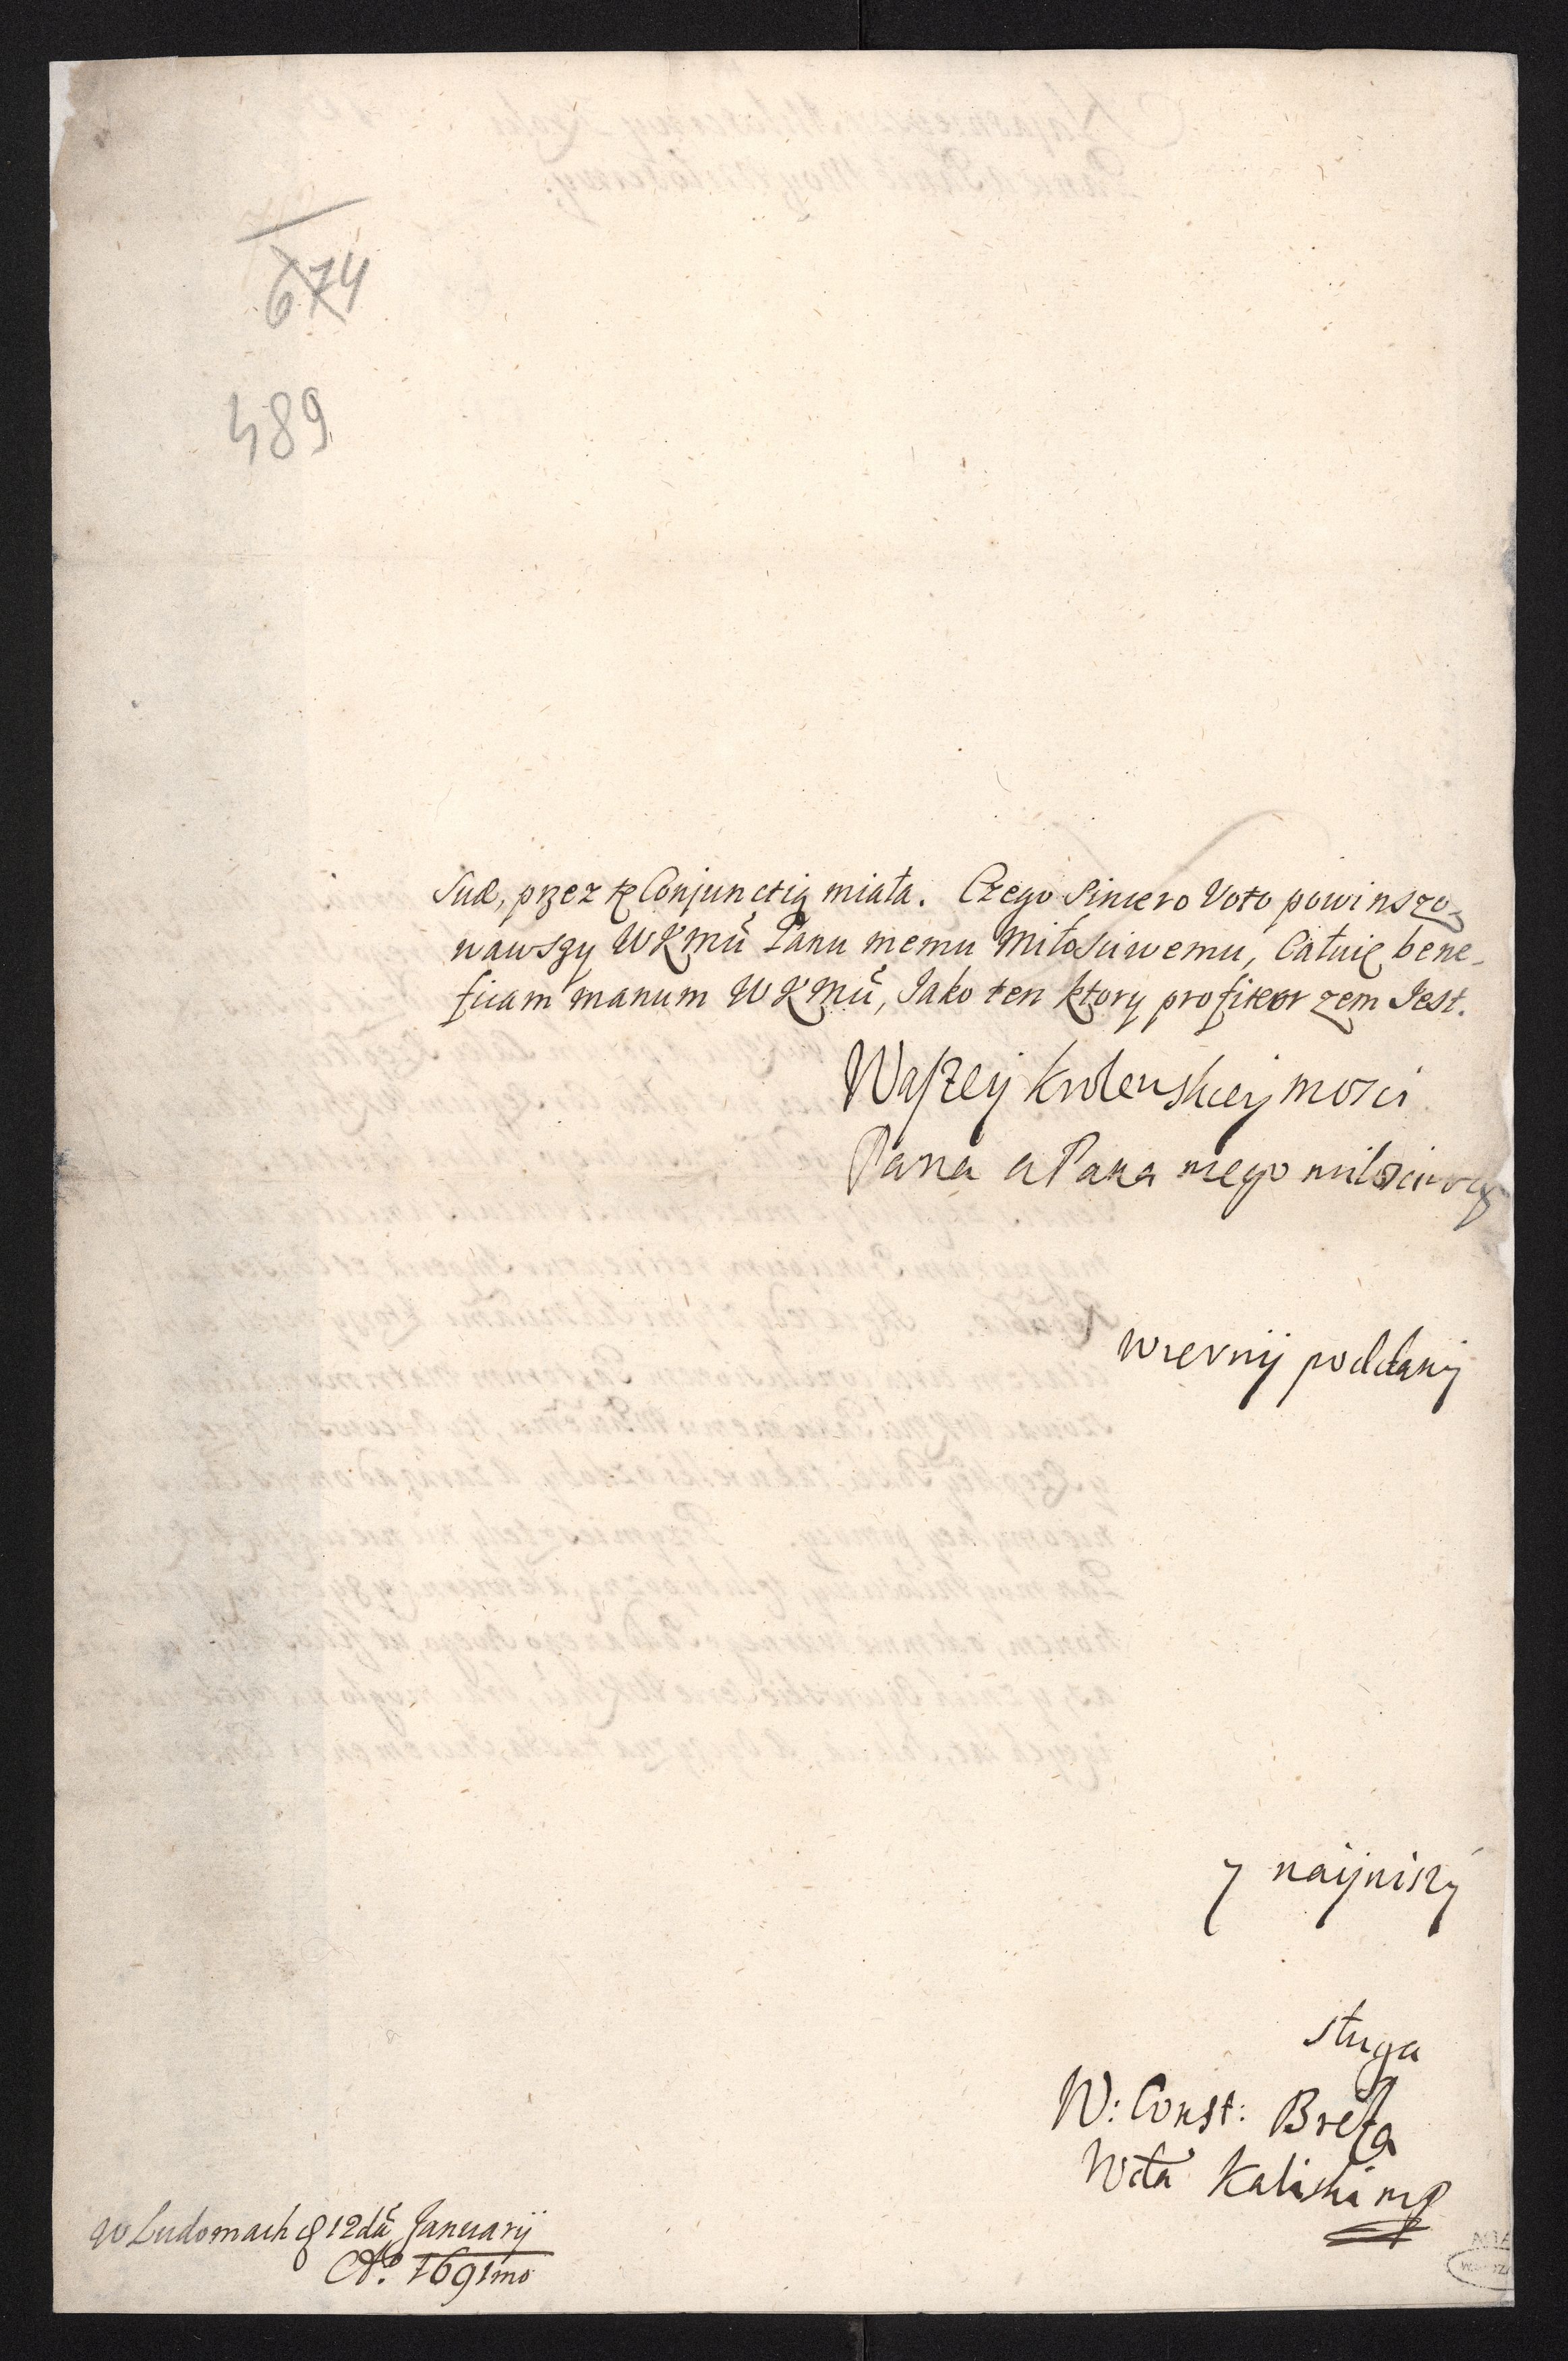 674
489
suæ, przez tę Conjunctią miała. Czego Sincero Voto powinszo-
wawszy WKMći Panu memu Miłosciwemu, Całuię bene-
ficam manum WKMći, Jako ten ktory profiteor zem Jest.
Waszey Krolewskiey Mosci
Pana a Pana mego milosciwego
wierny poddany
y naijniszy
sługa
W: Const: Breza
Wda Kaliski mp
w Ludomach d 12da Januarij
Ao. 1691mo